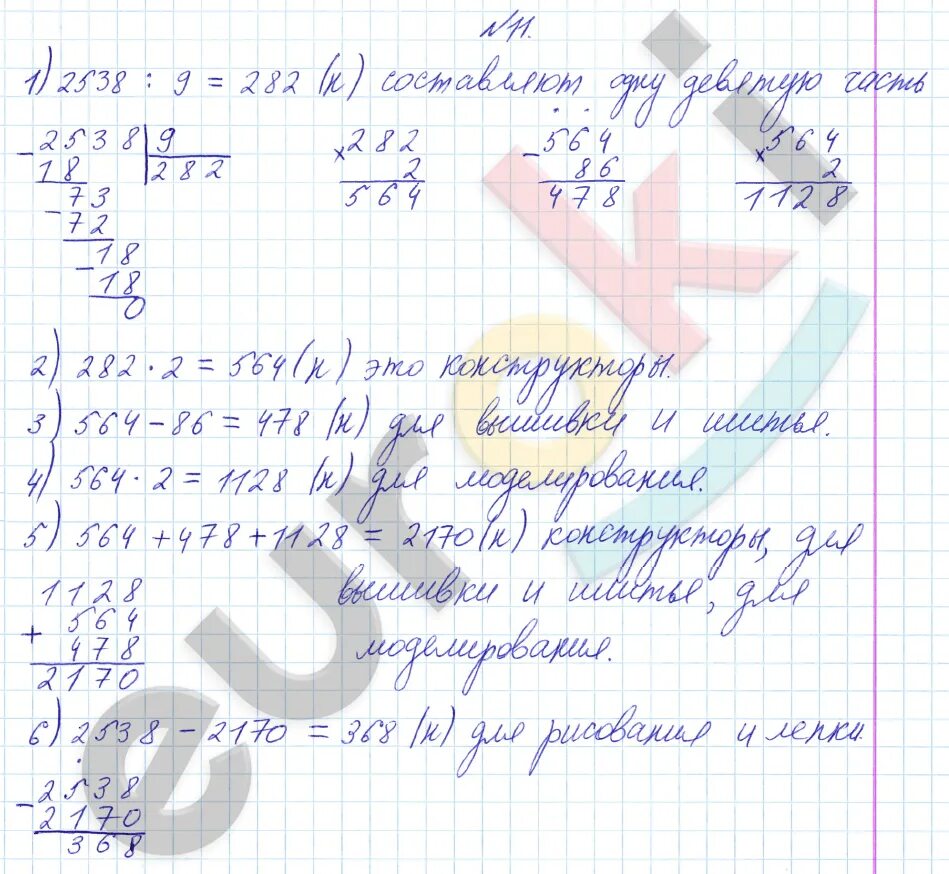 №11.
1) 2538 : 9 = 282 (н) составляют одну девятую часть
- 2538 | 9
18 | 282
- 73
72
- 18
18
0
× 282
2
564
- 564
86
478
× 564
2
1128
2) 282 · 2 = 564 (н) это конструкторы.
3) 564 - 86 = 478 (н) для вышивки и шитья.
4) 564 · 2 = 1128 (н) для моделирования.
5) 564 + 478 + 1128 = 2170 (н) конструкторы, для
вышивки и шитья, для
моделирования.
1128
+ 564
478
2170
6) 2538 - 2170 = 368 (н) для рисования и лепки.
- 2538
2170
368
euroki